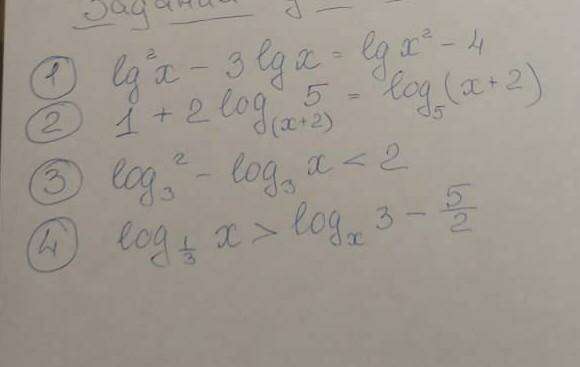 Задания
① lg²x − 3 lg x = lg x² − 4
② 1 + 2 log₍ₓ₊₂₎ 5 = log₅(x+2)
③ log₃² − log₃ x < 2
④ log_{1/3} x > logₓ 3 − 5/2